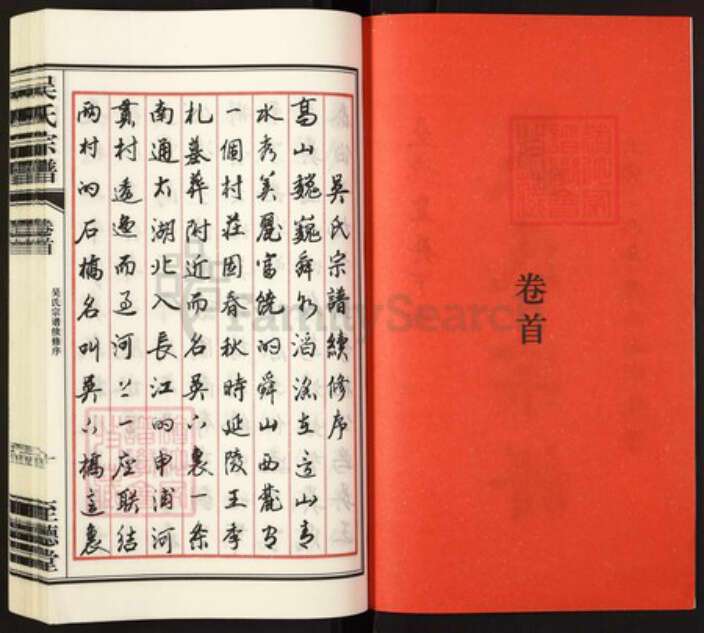 卷首
吴氏宗譜續修序
高山巍巍舜水滔滔在這山青
水秀美麗富饒的舜山西麓有
一個村莊因春秋時延陵王季
札墓葬附近而名吴裏一条
南通太湖北入長江的申浦河
貫村逶迤而过河上一座联结
两村的石橋名叫吴橋這裏
吴氏宗譜
卷首
吴氏宗谱续修序
一
至德堂
FamilySearch